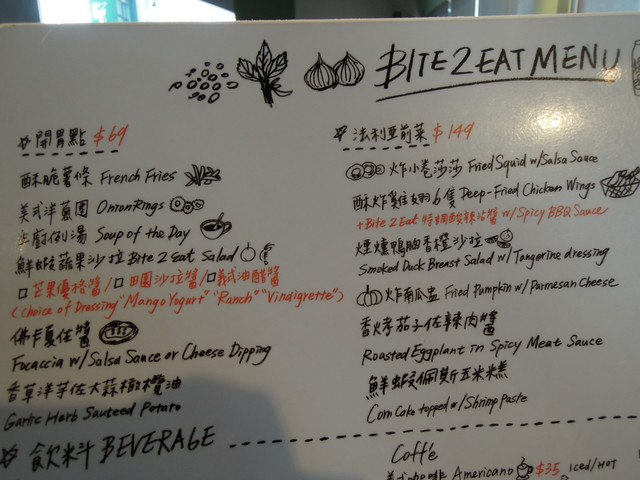 BITE 2 EAT MENU
開胃點 $69
酥脆薯條 French Fries
美式洋蔥圈 Onion Rings
主廚例湯 Soup of the Day
鮮蝦蔬果沙拉 Bite 2 Eat Salad
芒果優格醬/田園沙拉醬/義式油醋醬
(Choice of Dressing "Mango Yogurt" "Ranch" "Vindigrette")
佛卡夏佐醬
Focaccia w/Salsa Sauce or Cheese Dipping
香草洋芋佐大蒜橄欖油
Garlic Herb Sauteed Potato
法利亞前菜 $149
炸小卷莎莎 Fried Squid w/Salsa Sauce
酥炸雞翅6隻 Deep-Fried Chicken Wings
+Bite 2 Eat 特調酸辣沾醬 w/Spicy BBQ Sauce
煙燻鴨胸香橙沙拉
Smoked Duck Breast Salad w/Tangerine dressing
炸南瓜盅 Fried Pumpkin w/Parmesan Cheese
香烤茄子佐辣肉醬
Roasted Eggplant in Spicy Meat Sauce
鮮蝦佩斯玉米糕
Corn Cake topped w/Shrimp Paste
飲料 BEVERAGE
Coffè
美式咖啡 Americano $35 Iced/HOT